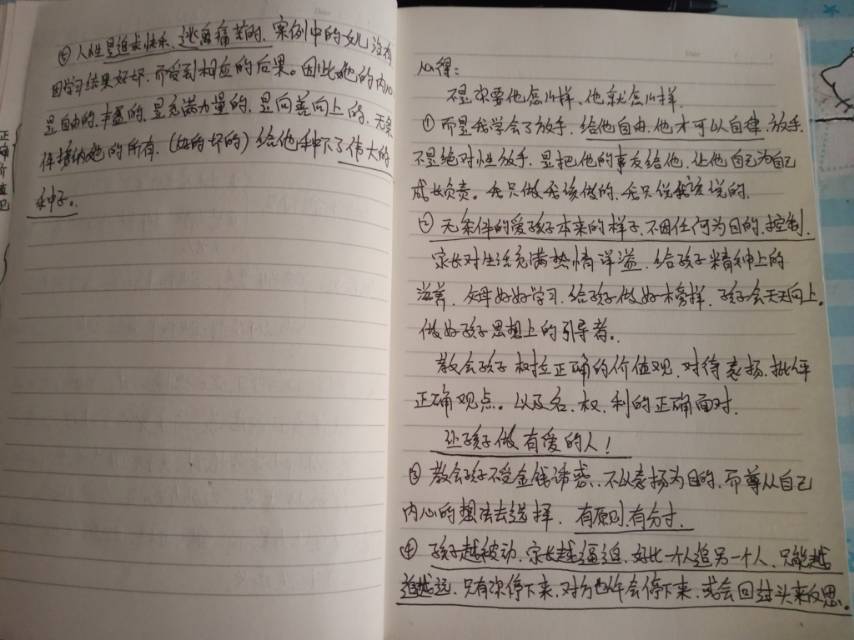 ⑥人性是追求快乐、逃离痛苦的，案例中的女儿没有
因学习结果好坏，而受到相应的后果。因此她的内心
是自由的，丰盛的，是充满力量的，是向善向上的，无条
件接纳她的所有，（好的坏的）给他种下了伟大的
种子。
正确价值观
心得：
不是你要他怎么样，他就怎么样
①而是我学会了放手，给他自由，他才可以自律，放手
不是绝对性放手，是把他的事交给他，让他自己为自己
成长负责。我只做我该做的，我只说我该说的。
②无条件的爱孩子本来的样子，不因任何为目的，控制。
家长对生活充满热情洋溢，给孩子精神上的
滋养，父母好好学习，给孩子做好木榜样，孩子会天天向上。
做好孩子思想上的引导者。
教会孩子树立正确的价值观，对待表扬、批评
正确观点。以及名、权、利的正确面对，
让孩子做有爱的人！
③教会孩子不受金钱诱惑，不以表扬为目的，而尊从自己
内心的想法去选择，有原则，有分寸，
④孩子越被动，家长越逼迫，好比一个人追另一个人，只能越
追越远，只有你停下来，对方也许会停下来，或会回过头来反思。